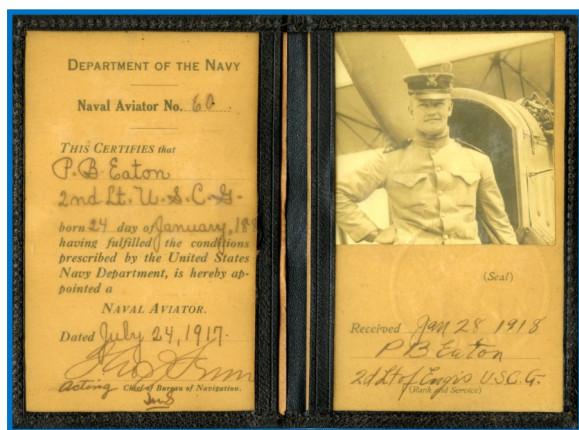 DEPARTMENT OF THE NAVY
Naval Aviator No. 60
THIS CERTIFIES that
P. B. Eaton
2nd Lt. U. S. C. G.
born 24 day of January, 188
having fulfilled the conditions
prescribed by the United States
Navy Department, is hereby ap-
pointed a
NAVAL AVIATOR.
Dated July 24, 1917.
Acting Chief of Bureau of Navigation.
(Seal)
Received Jan 28 1918
P B Eaton
2d Lt of Engrs U.S.C.G.
(Rank and Service)